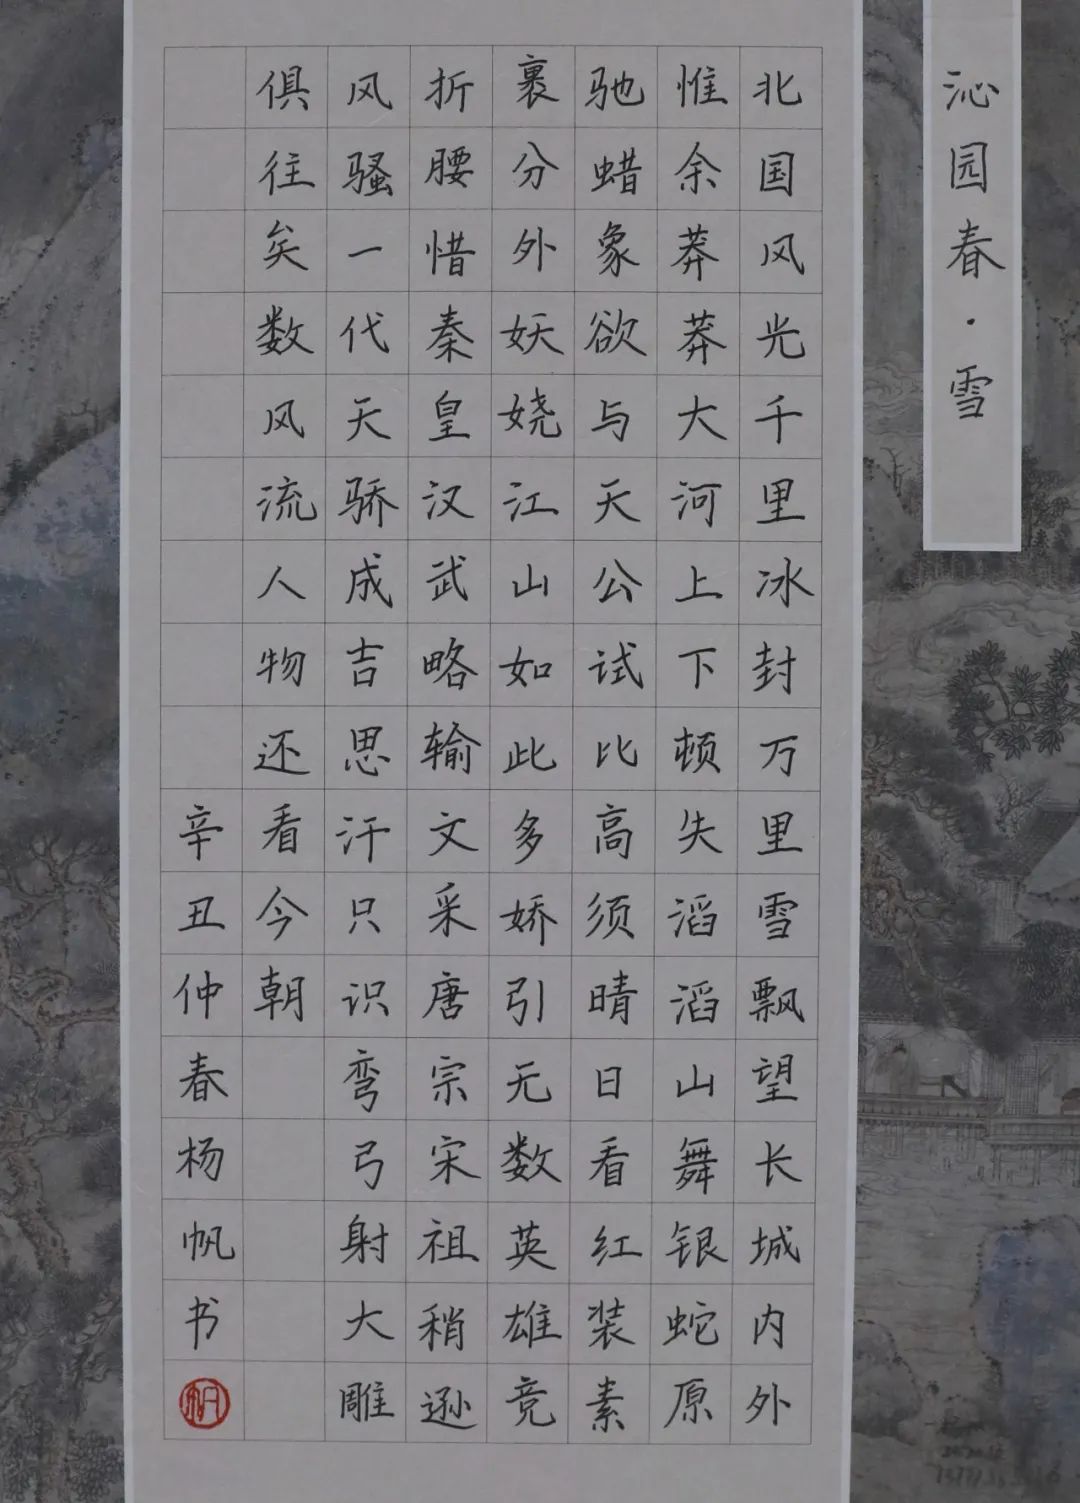 沁园春·雪
北国风光千里冰封万里雪飘望长城内外
惟余莽莽大河上下顿失滔滔山舞银蛇原
驰蜡象欲与天公试比高须晴日看红装素
裹分外妖娆江山如此多娇引无数英雄竞
折腰惜秦皇汉武略输文采唐宗宋祖稍逊
风骚一代天骄成吉思汗只识弯弓射大雕
俱往矣数风流人物还看今朝
辛丑仲春杨帆书